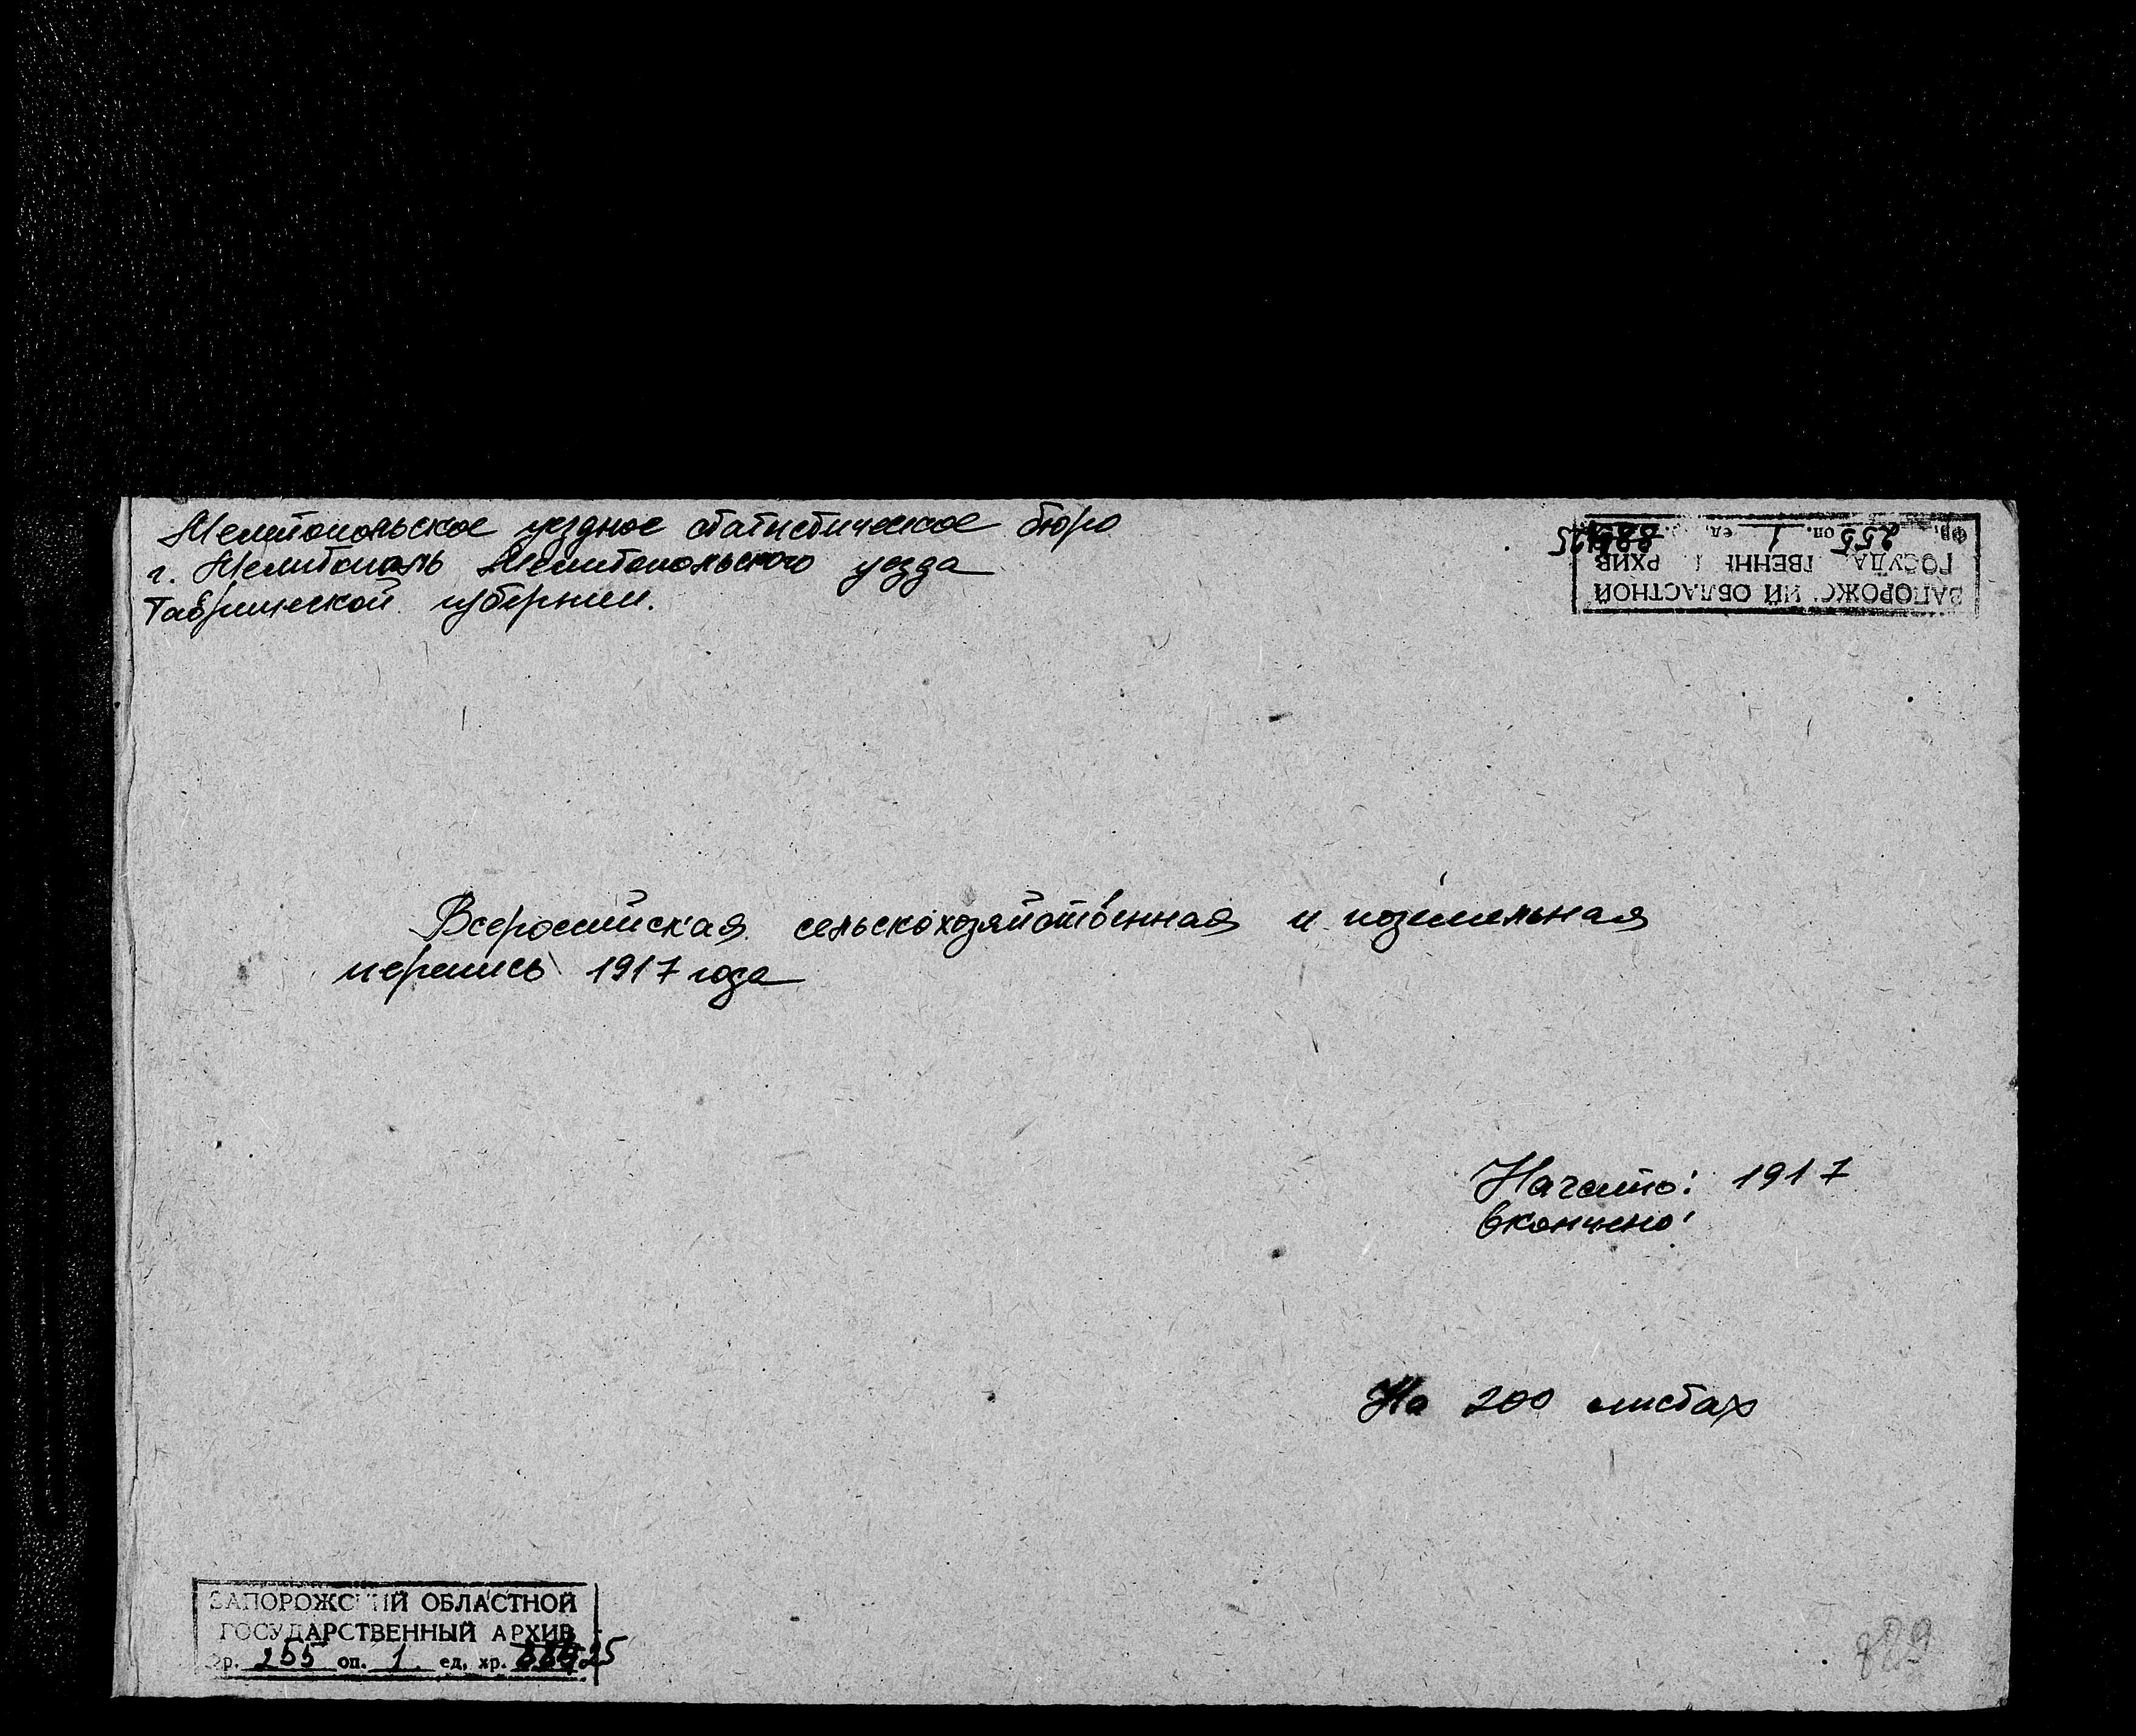 Мелитопольское уездное статистическое бюро
г. Мелитополь Мелитопольского уезда
Таврической губернии.
ЗАПОРОЖСКИЙ ОБЛАСТНОЙ
ГОСУДАРСТВЕННЫЙ АРХИВ
Фр. 255 оп. 1 ед.
Всероссийская сельскохозяйственная и поземельная
перепись 1917 года
Начато: 1917
Окончено:
На 200 листах
ЗАПОРОЖСКИЙ ОБЛАСТНОЙ
ГОСУДАРСТВЕННЫЙ АРХИВ
Фр. 255 оп. 1 ед. хр. 25
829